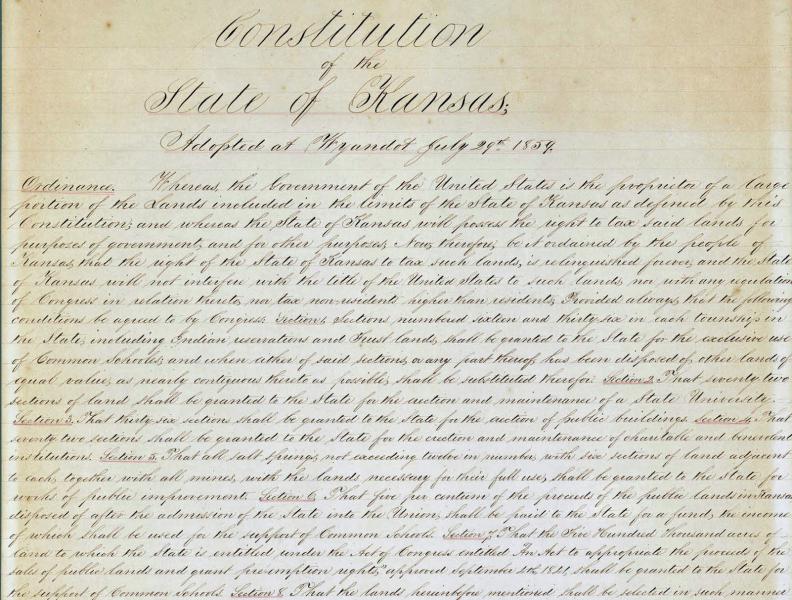 Constitution
of the
State of Kansas;
Adopted at Wyandot July 29th 1859.
Ordinance. Whereas, the Government of the United States is the proprietor of a large
portion of the Lands included in the limits of the State of Kansas as defined by this
Constitution; and whereas the State of Kansas will possess the right to tax said lands, for
purposes of government, and for other purposes; Now, therefore, be it ordained by the people of
Kansas, that the right of the State of Kansas to tax such lands, is relinquished forever, and the State
of Kansas will not interfere with the title of the United States to such lands, nor with any regulation
of Congress in relation thereto, nor tax non-residents higher than residents; Provided always, that the following
conditions be agreed to by Congress: Section 1, Sections numbered sixteen and thirty-six in each township in
the State, including Indian reservations and Trust lands, shall be granted to the State for the exclusive use
of Common Schools; and when either of said sections, or any part thereof, has been disposed of, other lands of
equal value, as nearly contiguous thereto as possible, shall be substituted therefor. Section 2. That seventy two
sections of land shall be granted to the State for the erection and maintenance of a State University.
Section 3. That thirty six sections shall be granted to the State for the erection of public buildings. Section 4. That
seventy two sections shall be granted to the State for the erection and maintenance of charitable and benevolent
institutions. Section 5. That all salt springs, not exceeding twelve in number, with six sections of land adjacent
to each, together with all mines, with the lands necessary for their full use, shall be granted to the State for
works of public improvement. Section 6. That five per centum of the proceeds of the public lands in Kansas
disposed of after the admission of the State into the Union, shall be paid to the State for a fund, the income
of which shall be used for the support of Common Schools. Section 7. That the Five Hundred thousand acres of
land to which the State is entitled under the Act of Congress entitled "An Act to appropriate the proceeds of the
sales of public lands and grant pre-emption rights," approved September 4th 1841, shall be granted to the State for
the support of Common Schools. Section 8. That the lands hereinbefore mentioned shall be selected in such manner